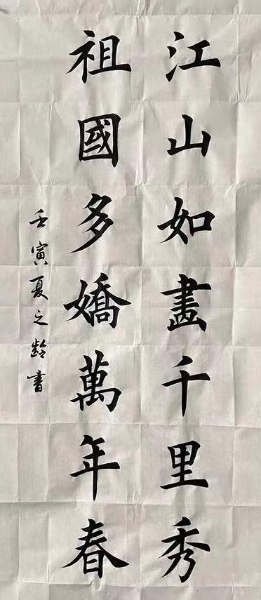 江山如畫千里秀
祖國多嬌萬年春
壬寅夏之齡書